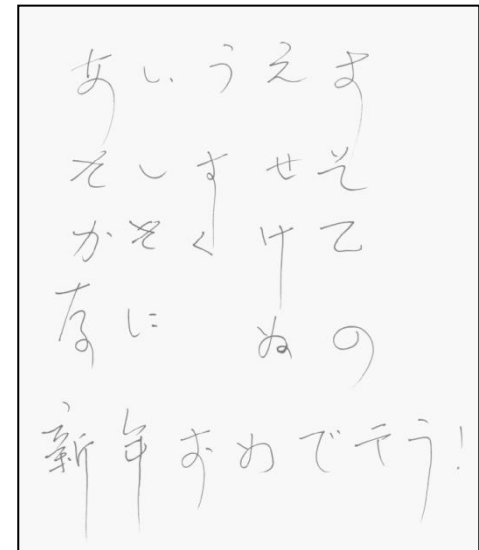 あいうえお
さしすせそ
かきくけこ
なに ぬの
新年おめでそう!